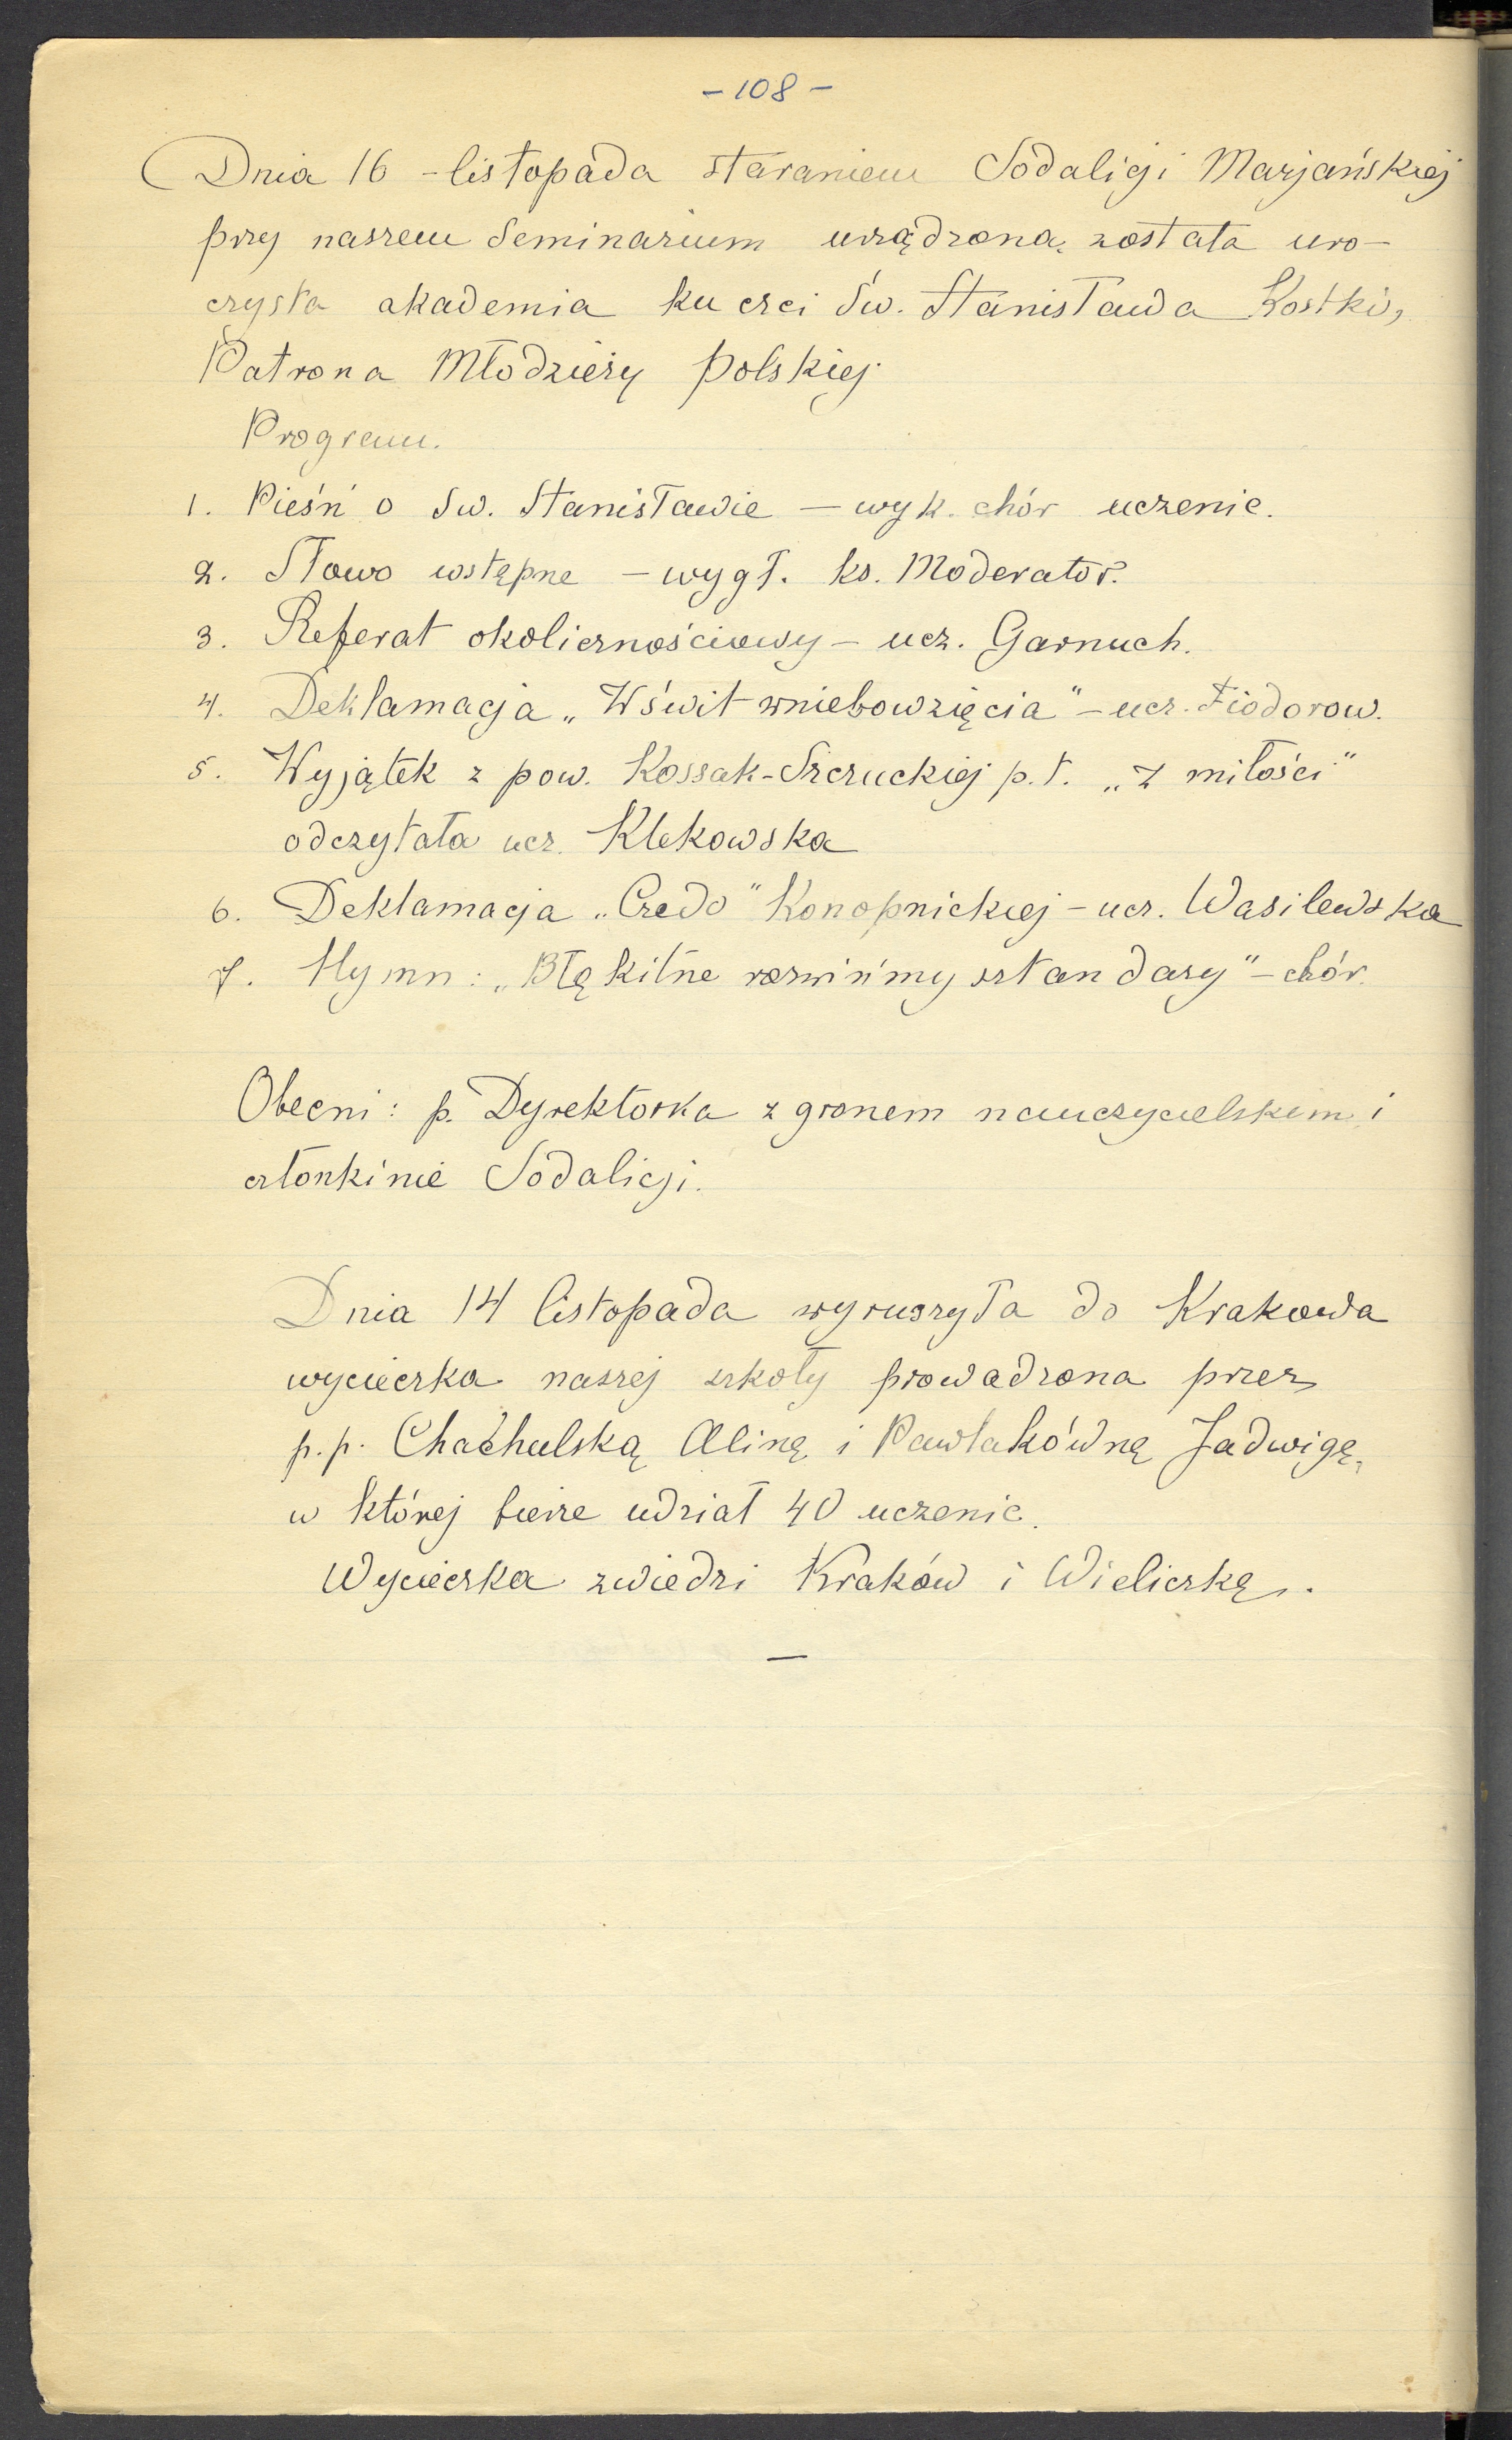 - 108 -
Dnia 16 - listopada staraniem Sodalicji Marjańskiej
przy naszem Seminarium urządzona została uro-
czysta akademia ku czci Św. Stanisława Kostki,
Patrona Młodzieży Polskiej.
Program.
1. Pieśń o Św. Stanisławie — wyk. chór uczenic.
2. Słowo wstępne — wygł. ks. Moderator.
3. Referat okolicznościowy — ucz. Garnuch.
4. Deklamacja „Wświt wniebowzięcia" — ucz. Fiodorow.
5. Wyjątek z pow. Kossak-Szczuckiej p.t. „Z miłości"
odczytała ucz. Klekowska
6. Deklamacja „Credo" Konopnickiej — ucz. Wasilewska
7. Hymn: „Błękitne rozwińmy sztandary" — chór.
Obecni: p. Dyrektorka z gronem nauczycielskiem i
członkinie Sodalicji.
Dnia 14 listopada wyruszyła do Krakowa
wycieczka naszej szkoły prowadzona przez
p.p. Chachulską Alinę i Pawlakównę Jadwigę,
w której bierze udział 40 uczenic.
Wycieczka zwiedzi Kraków i Wieliczkę.
—